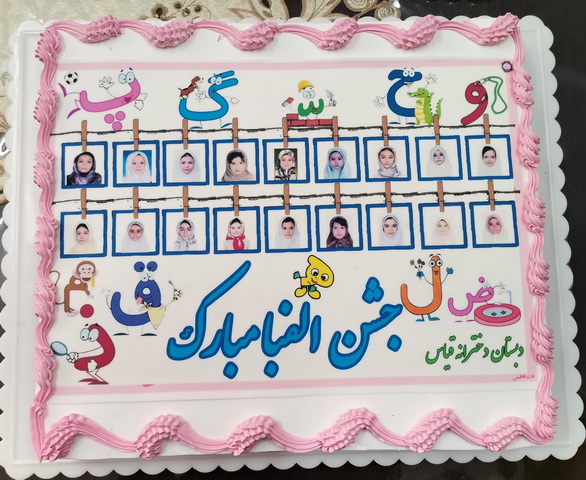 و خ س گ پ
ض ل ق ن
جشن الفبا مبارک
دبستان دخترانه قیاس